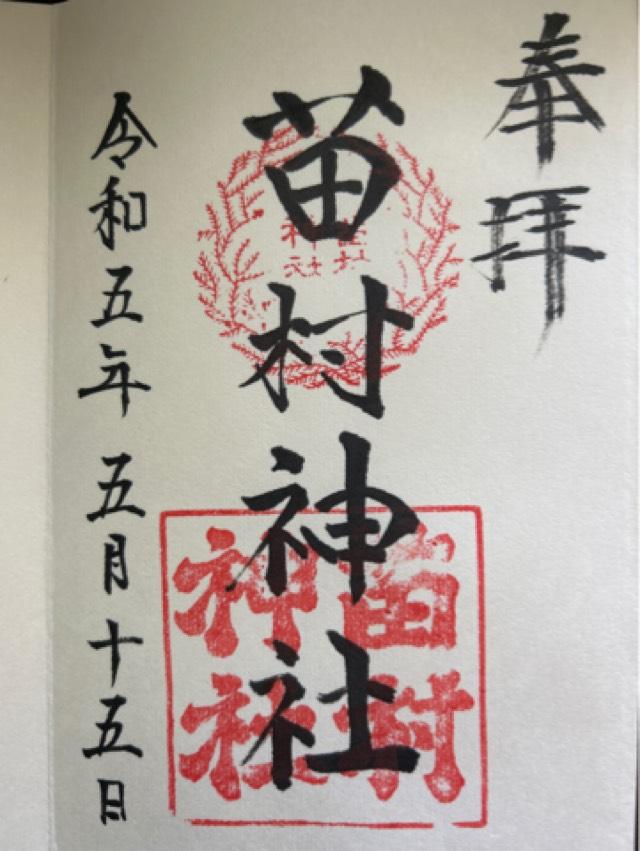 奉拝
苗村神社
令和五年五月十五日
苗村
神社
苗村
神社